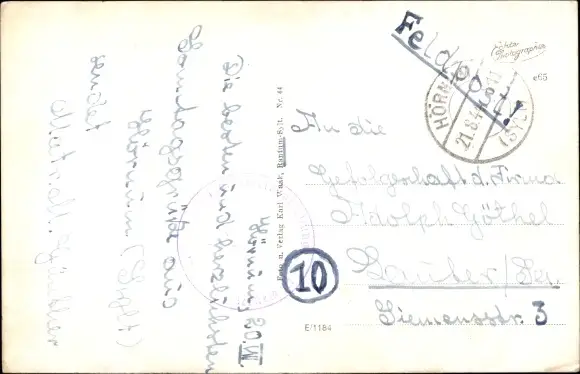 Feldpost!
Echte
Photographie
e65
HÖRNUM
(SYLT)
21.8.4
Hörnum, 20.VIII
Die besten und herzlichsten
Sonntagsgrüße aus
Hörnum (Sylt)
sendet
Foto u. Verlag Karl Waak, Rantum-Sylt. Nr. 44
10
E/1184
An die
Gefolgschaft d. Firma
Adolph Göthel
Lauter/Sa.
Siemensstr. 3